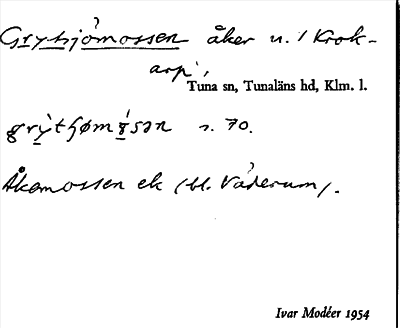 Grytsjömossen åker n. / Krok-
arp,
Tuna sn, Tunaläns hd, Klm. l.
s. 70.
Åkemossen ek (bl. Väderum).
Ivar Modéer 1954